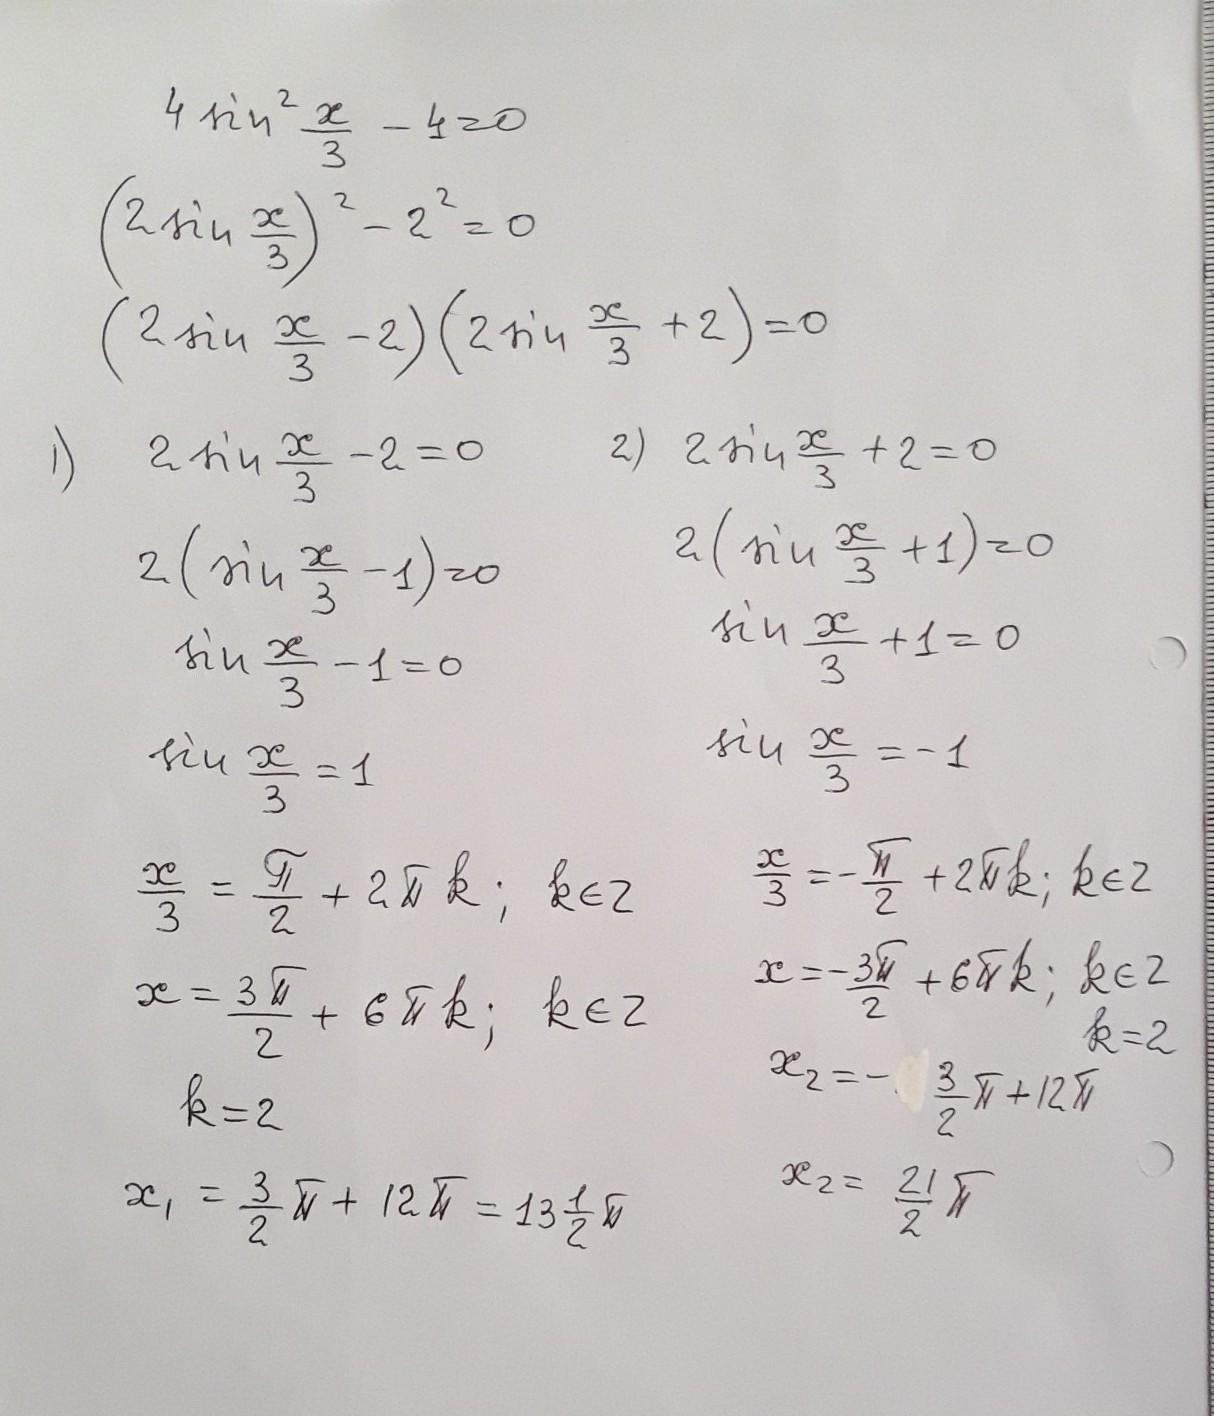 4 sin² x/3 - 4 = 0
(2 sin x/3)² - 2² = 0
(2 sin x/3 - 2)(2 sin x/3 + 2) = 0
1) 2 sin x/3 - 2 = 0
2(sin x/3 - 1) = 0
sin x/3 - 1 = 0
sin x/3 = 1
x/3 = π/2 + 2πk; k∈Z
x = 3π/2 + 6πk; k∈Z
k = 2
x₁ = 3/2 π + 12π = 13 1/2 π
2) 2 sin x/3 + 2 = 0
2(sin x/3 + 1) = 0
sin x/3 + 1 = 0
sin x/3 = -1
x/3 = -π/2 + 2πk; k∈Z
x = -3π/2 + 6πk; k∈Z
k = 2
x₂ = - 3/2 π + 12π
x₂ = 21/2 π